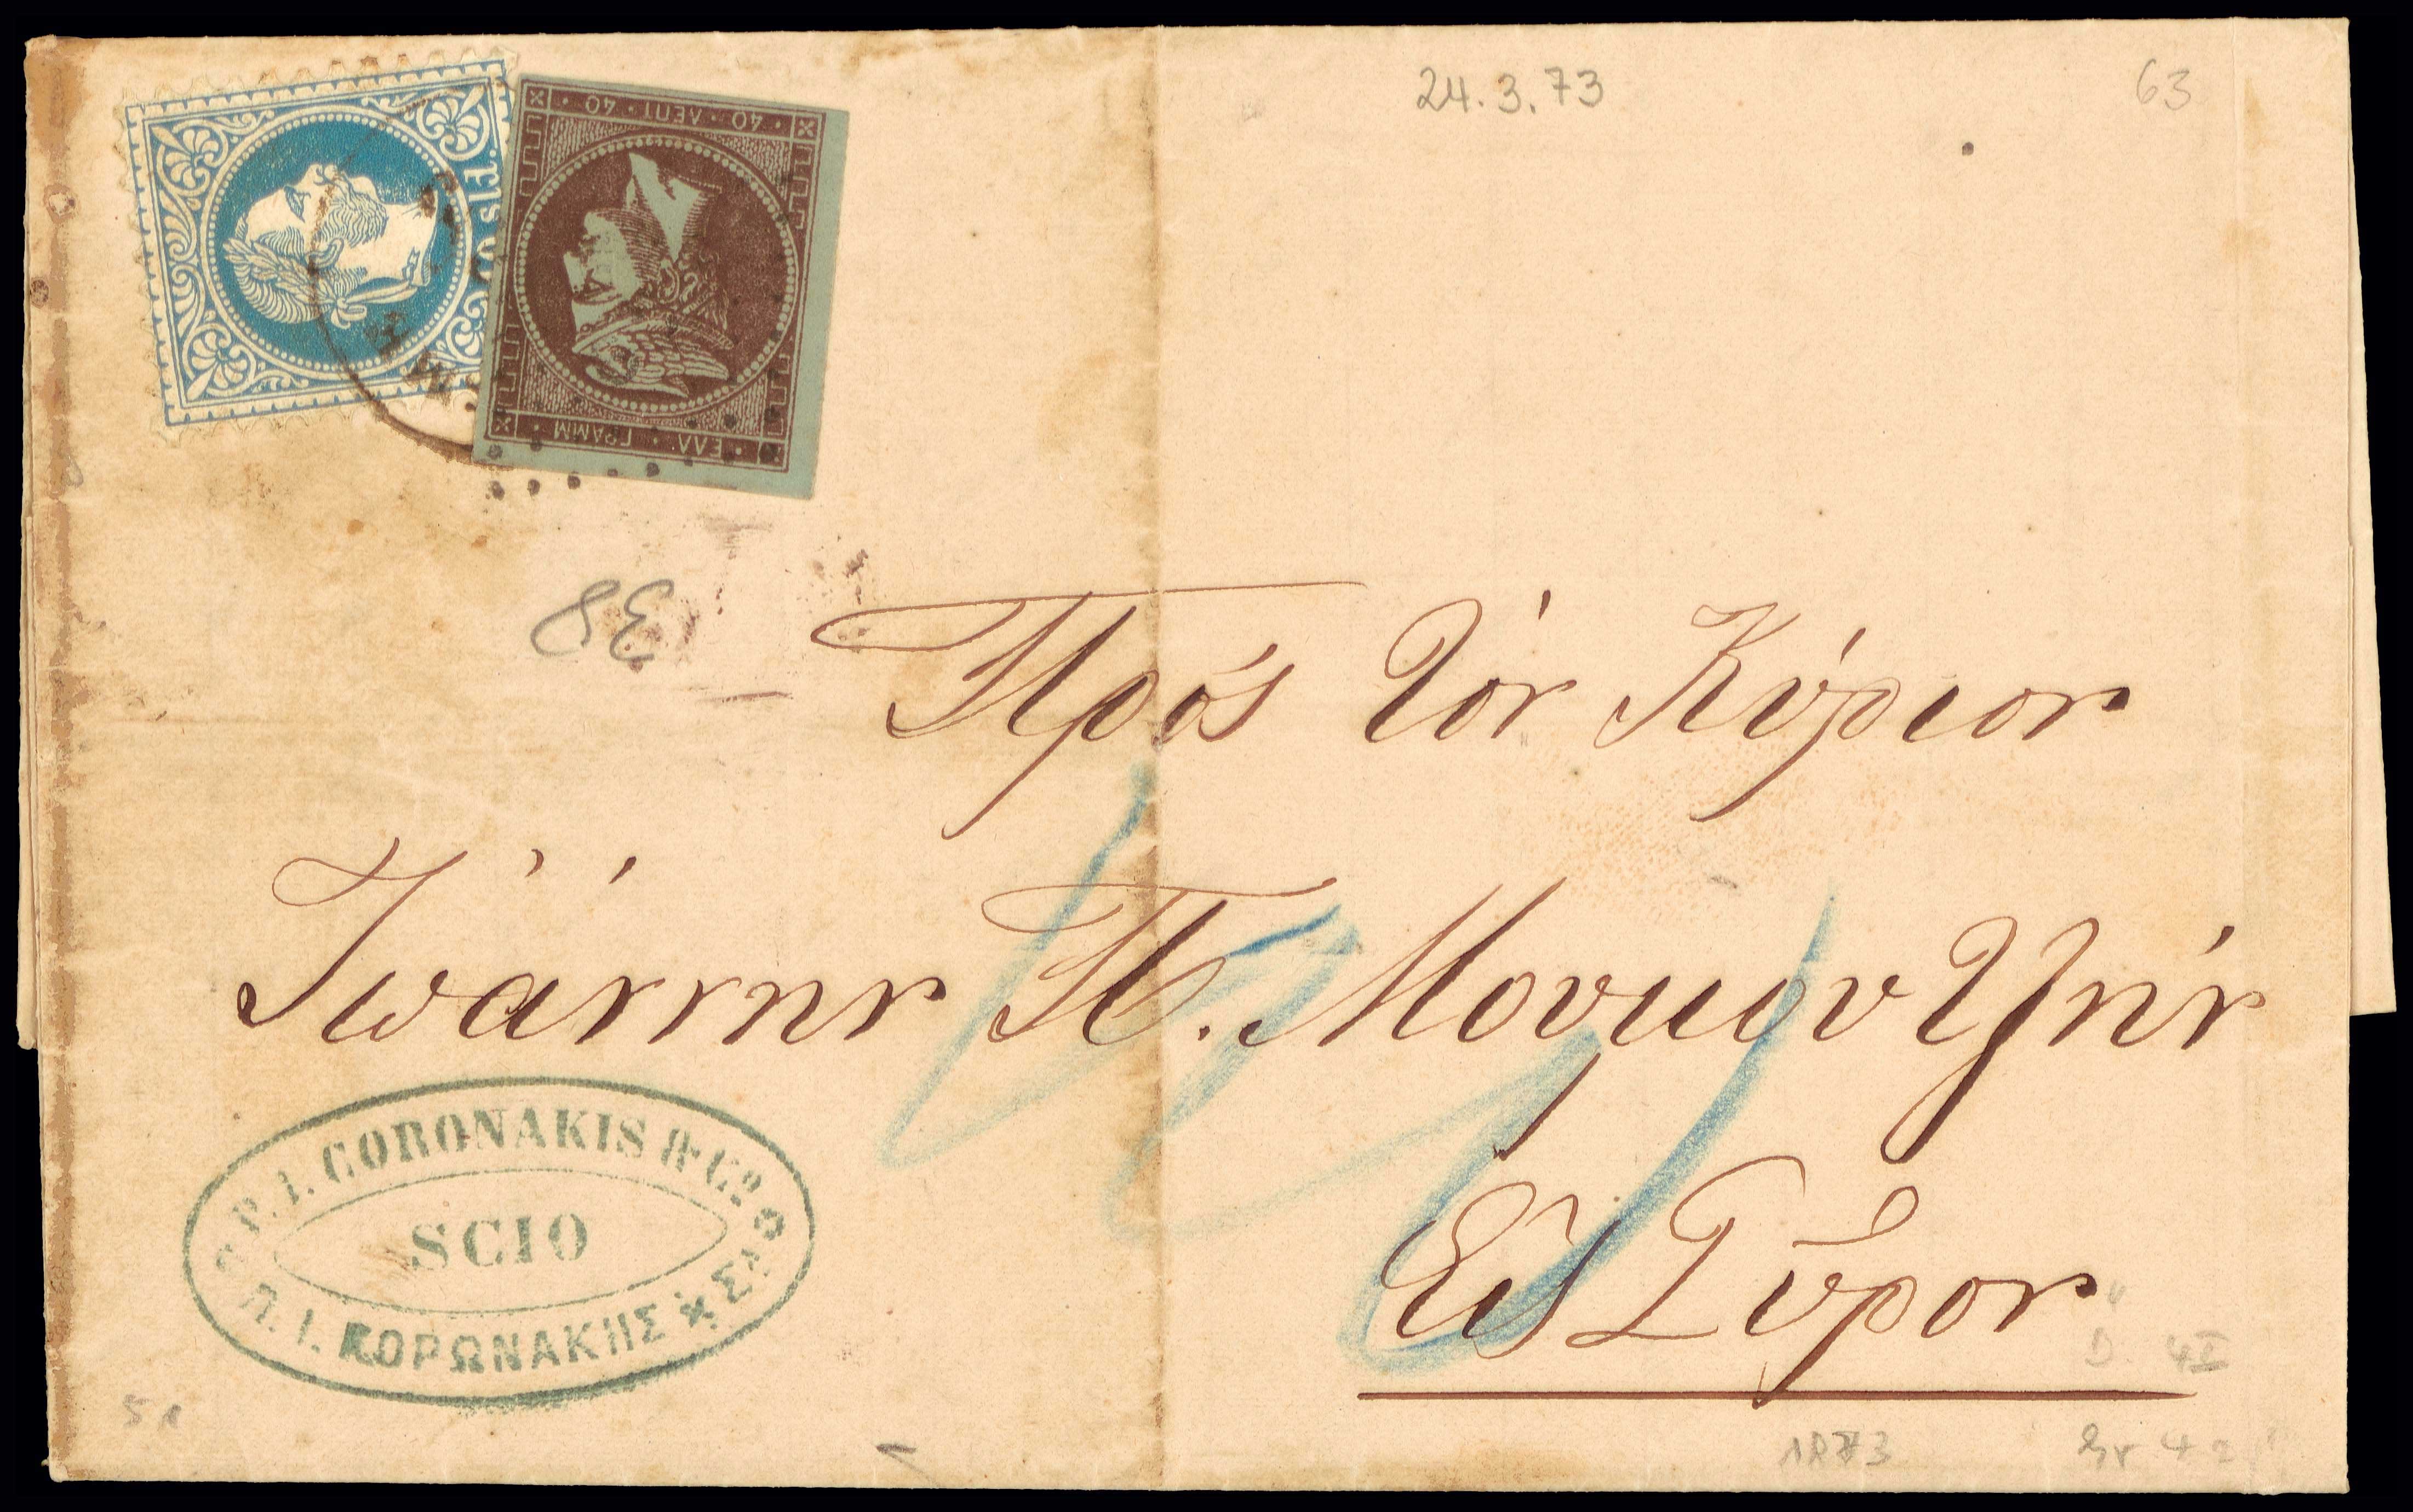 24.3.73
63
40 · ΛΕΠΤ · 40
ΕΛΛ · ΓΡΑΜΜ
38
Πρός Τόν Κύριον
Ἰωάννην Π. Μουκουτζήν
Εἰς Σῦρον
P. I. CORONAKIS & Co.
SCIO
Π. Ι. ΚΟΡΩΝΑΚΗΣ
1873